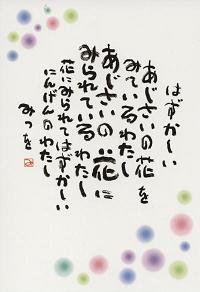 はずかしい
あじさいの花を
みているわたし
あじさいの花に
みられているわたし
花にみられてはずかしい
にんげんのわたし
みつを